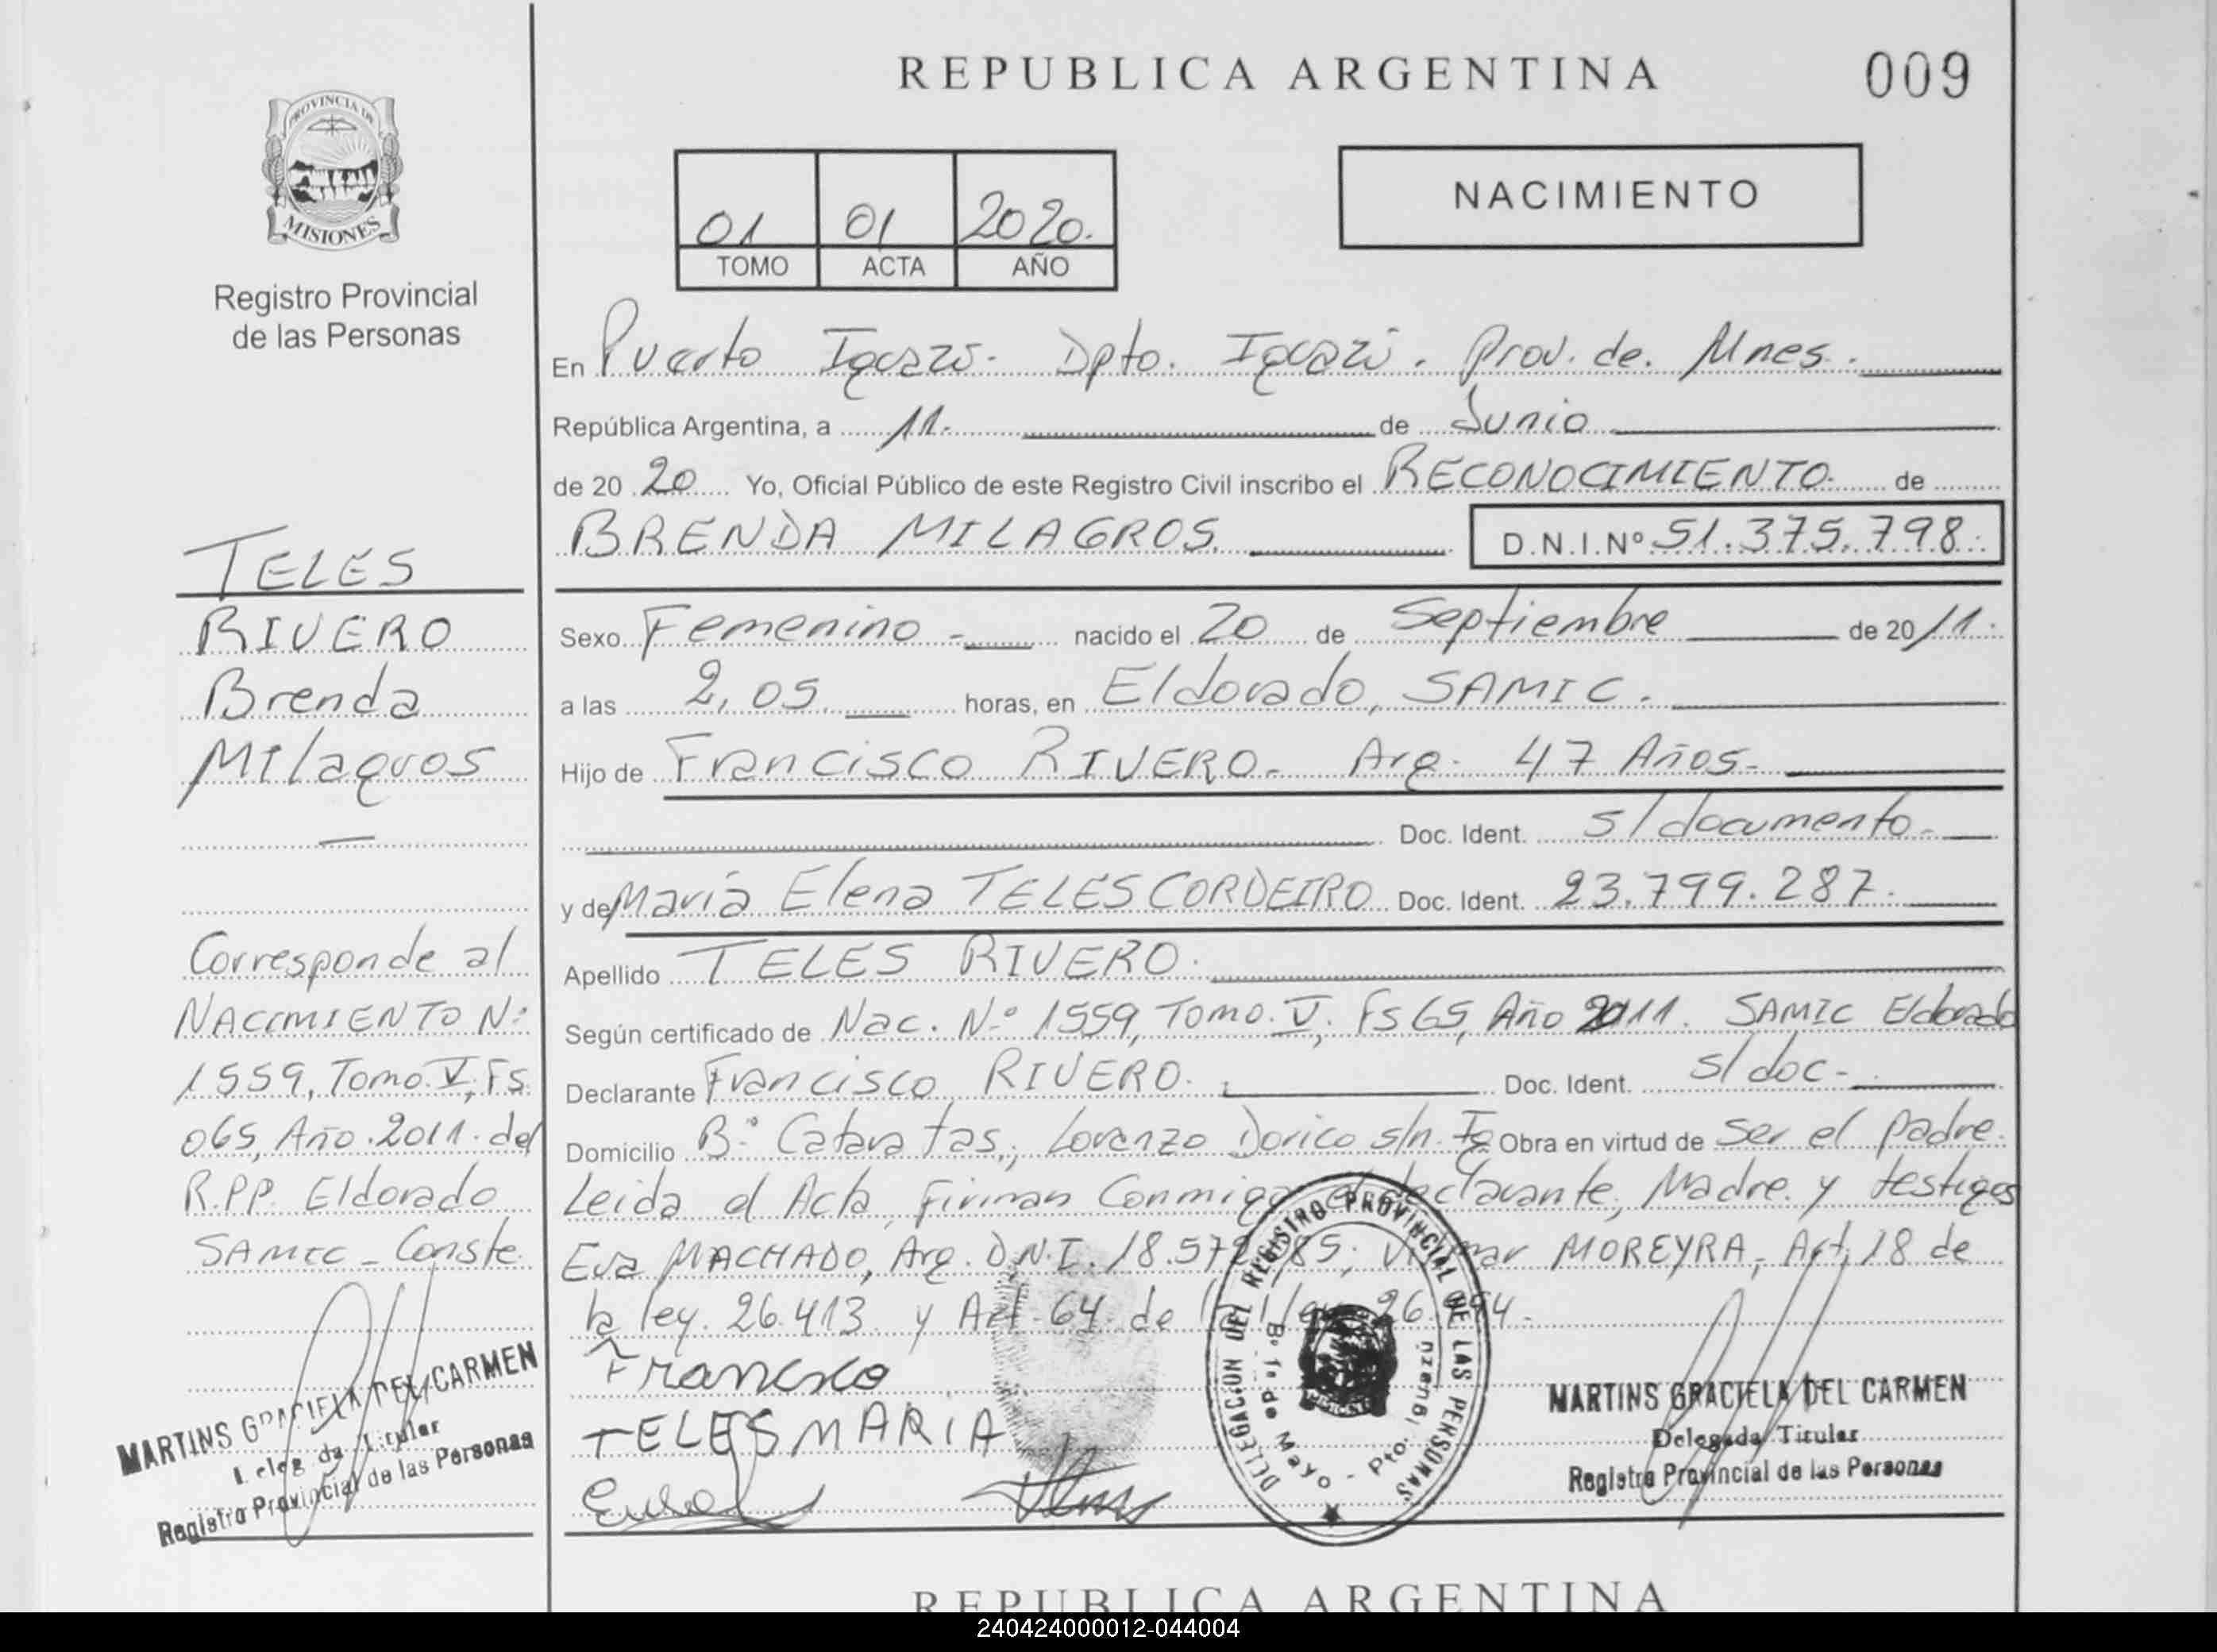 REPUBLICA ARGENTINA
009
PROVINCIA DE
MISIONES
Registro Provincial
de las Personas
01 01 2020.
TOMO ACTA AÑO
NACIMIENTO
En Puerto Iguazú. Dpto. Iguazú. Prov. de. Mnes.
República Argentina, a 11. de Junio
de 20 20 Yo, Oficial Público de este Registro Civil inscribo el RECONOCIMIENTO. de
BRENDA MILAGROS. D.N.I.Nº 51.375.798.
Sexo Femenino nacido el 20 de Septiembre de 20 11.
a las 2,05 horas, en Eldorado, SAMIC.
Hijo de Francisco RIVERO. Arg. 47 Años.
Doc. Ident. s/documento.
y de María Elena TELES CORDEIRO Doc. Ident. 23.799.287.
Apellido TELES RIVERO.
Según certificado de Nac. Nº 1559, Tomo. V. Fs 65, Año 2011. SAMIC Eldorado
Declarante Francisco RIVERO. Doc. Ident. s/doc-
Domicilio Bº Cataratas, Lorenzo Dorico s/n. Ig Obra en virtud de Ser el padre.
Leida el Acta, Firman Conmigo el declarante, Madre y testigos
Eva MACHADO, Arg. D.N.I. 18.57 85; MOREYRA, Art. 18 de
la ley. 26.413 y Art. 64 de la ley 26.994.
Francisco
TELES MARIA
DELEGACION DEL REGISTRO PROVINCIAL DE LAS PERSONAS
Bº 1º de Mayo - Pto.
MARTINS GRACIELA DEL CARMEN
Delegada Titular
Registro Provincial de las Personas
TELES
RIVERO
Brenda
Milagros
Corresponde al
NACIMIENTO Nº
1559, Tomo. V, Fs.
065, Año. 2011. del
R.P.P. Eldorado
SAMIC - Conste.
MARTINS GRACIELA DEL CARMEN
Delegada Titular
Registro Provincial de las Personas
REPUBLICA ARGENTINA
240424000012-044004